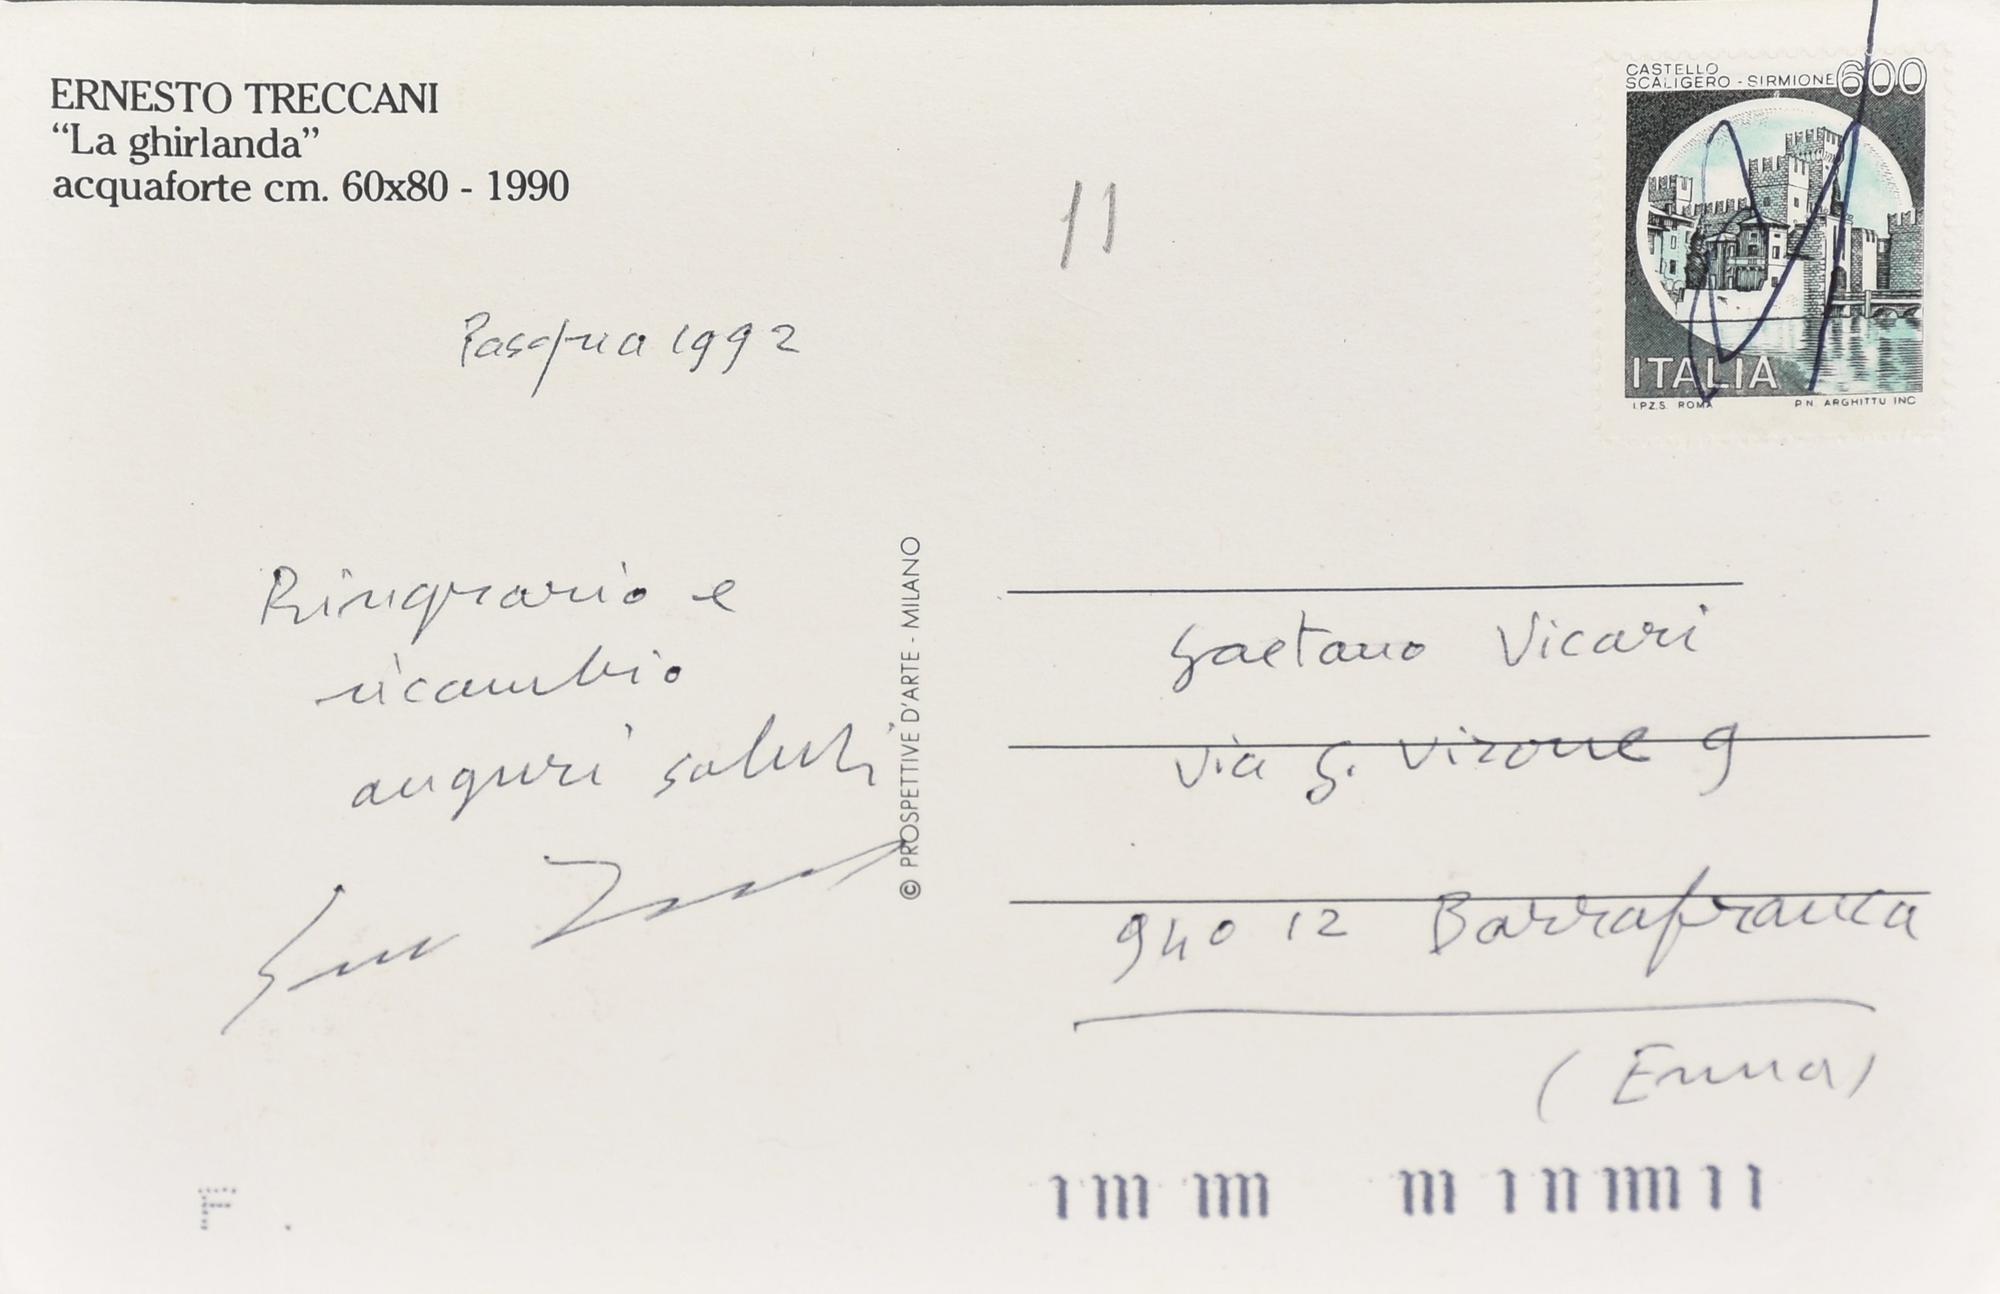 ERNESTO TRECCANI
“La ghirlanda”
acquaforte cm. 60x80 - 1990
11
CASTELLO
SCALIGERO - SIRMIONE 600
ITALIA
I.P.Z.S. ROMA P.N. ARGHITTU INC
Pasqua 1992
Ringrazio e
ricambio
auguri saluti
© PROSPETTIVE D'ARTE - MILANO
Gaetano Vicari
via G. Virone 9
94012 Barrafranca
(Enna)
F.